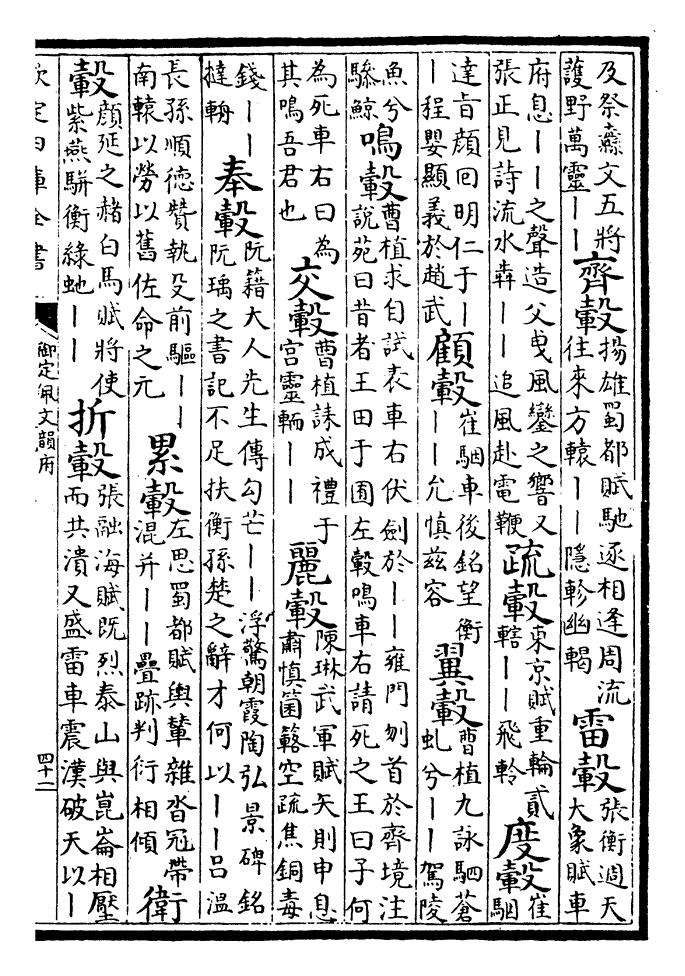 及祭纛文五將
護野萬靈丨丨
齊轂
揚雄蜀都賦馳逐相逢周流
往來方轅丨丨隱軫幽輵
雷轂
張衡週天
大象賦車
府息丨丨之聲造父曳風鑾之響又
張正見詩流水犇丨丨追風赴電鞭
疏轂
東京賦重輪貳
轄丨丨飛軨
度轂
崔
駰
達旨顔回明仁于丨
丨程嬰顯義於趙武
顧轂
崔駰車後銘望衡
丨丨允慎茲容
翼轂
曹植九詠駟蒼
虬兮丨丨駕陵
魚兮
驂鯨
鳴轂
曹植求自試表車右伏劍於丨丨雍門刎首於齊境注
說苑曰昔者王田于囿左轂鳴車右請死之王曰子何
為死車右曰為
其鳴吾君也
交轂
曹植誄成禮于
宫靈輀丨丨
麗轂
陳琳武軍賦矢則申息
肅慎箘簵空疏焦銅毒
錢丨丨
撻輈
奉轂
阮籍大人先生傳勾芒丨丨浮驚朝霞陶弘景碑銘
阮瑀之書記不足扶衡孫楚之辭才何以丨丨吕温
長孫順德贊執殳前驅丨丨
南轅以勞以舊佐命之元
累轂
左思蜀都賦輿輦雜沓冠帶
混并丨丨疊跡判衍相傾
衛
轂
顔延之赭白馬賦將使
紫燕駢衡綠虵丨丨
折轂
張融海賦既烈泰山與崑崙相壓
而共潰又盛雷車震漢破天以丨
欽定四庫全書
御定佩文韻府
四十二